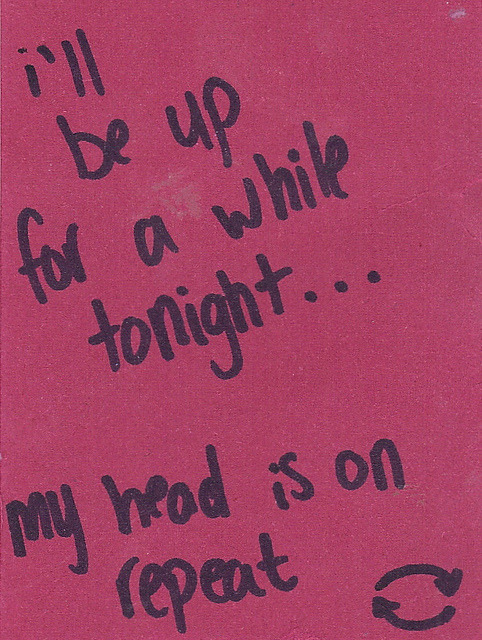 i'll
be up
for a while
tonight...
my head is on
repeat